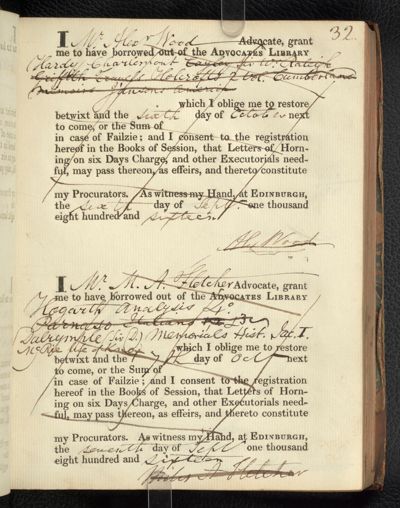 32.
I Mr. Alexr Wood Advocate, grant
me to have borrowed out of the ADVOCATES LIBRARY
Hardy's Charlemont Sir Wr. Raleigh
Griffith 2 vol. Cumberland
Memoirs
which I oblige me to restore
betwixt and the sixth day of October next
to come, or the Sum of
in case of Failzie; and I consent to the registration
hereof in the Books of Session, that Letters of Horn-
ing on six Days Charge, and other Executorials need-
ful, may pass thereon, as effeirs, and thereto constitute
my Procurators. As witness my Hand, at EDINBURGH,
the sixth day of Septr. one thousand
eight hundred and sixteen.
Alex Wood
I Mr. M. A. Fletcher Advocate, grant
me to have borrowed out of the ADVOCATES LIBRARY
Hogarth Analysis 4o.
Parnaso Italiano
Dalrymple (Sir D.) Memorials Hist. Sat. I.
which I oblige me to restore
betwixt and the 7th day of Oct next
to come, or the Sum of
in case of Failzie; and I consent to the registration
hereof in the Books of Session, that Letters of Horn-
ing on six Days Charge, and other Executorials need-
ful, may pass thereon, as effeirs, and thereto constitute
my Procurators. As witness my Hand, at EDINBURGH,
the seventh day of Sept one thousand
eight hundred and sixteen
A Fletcher